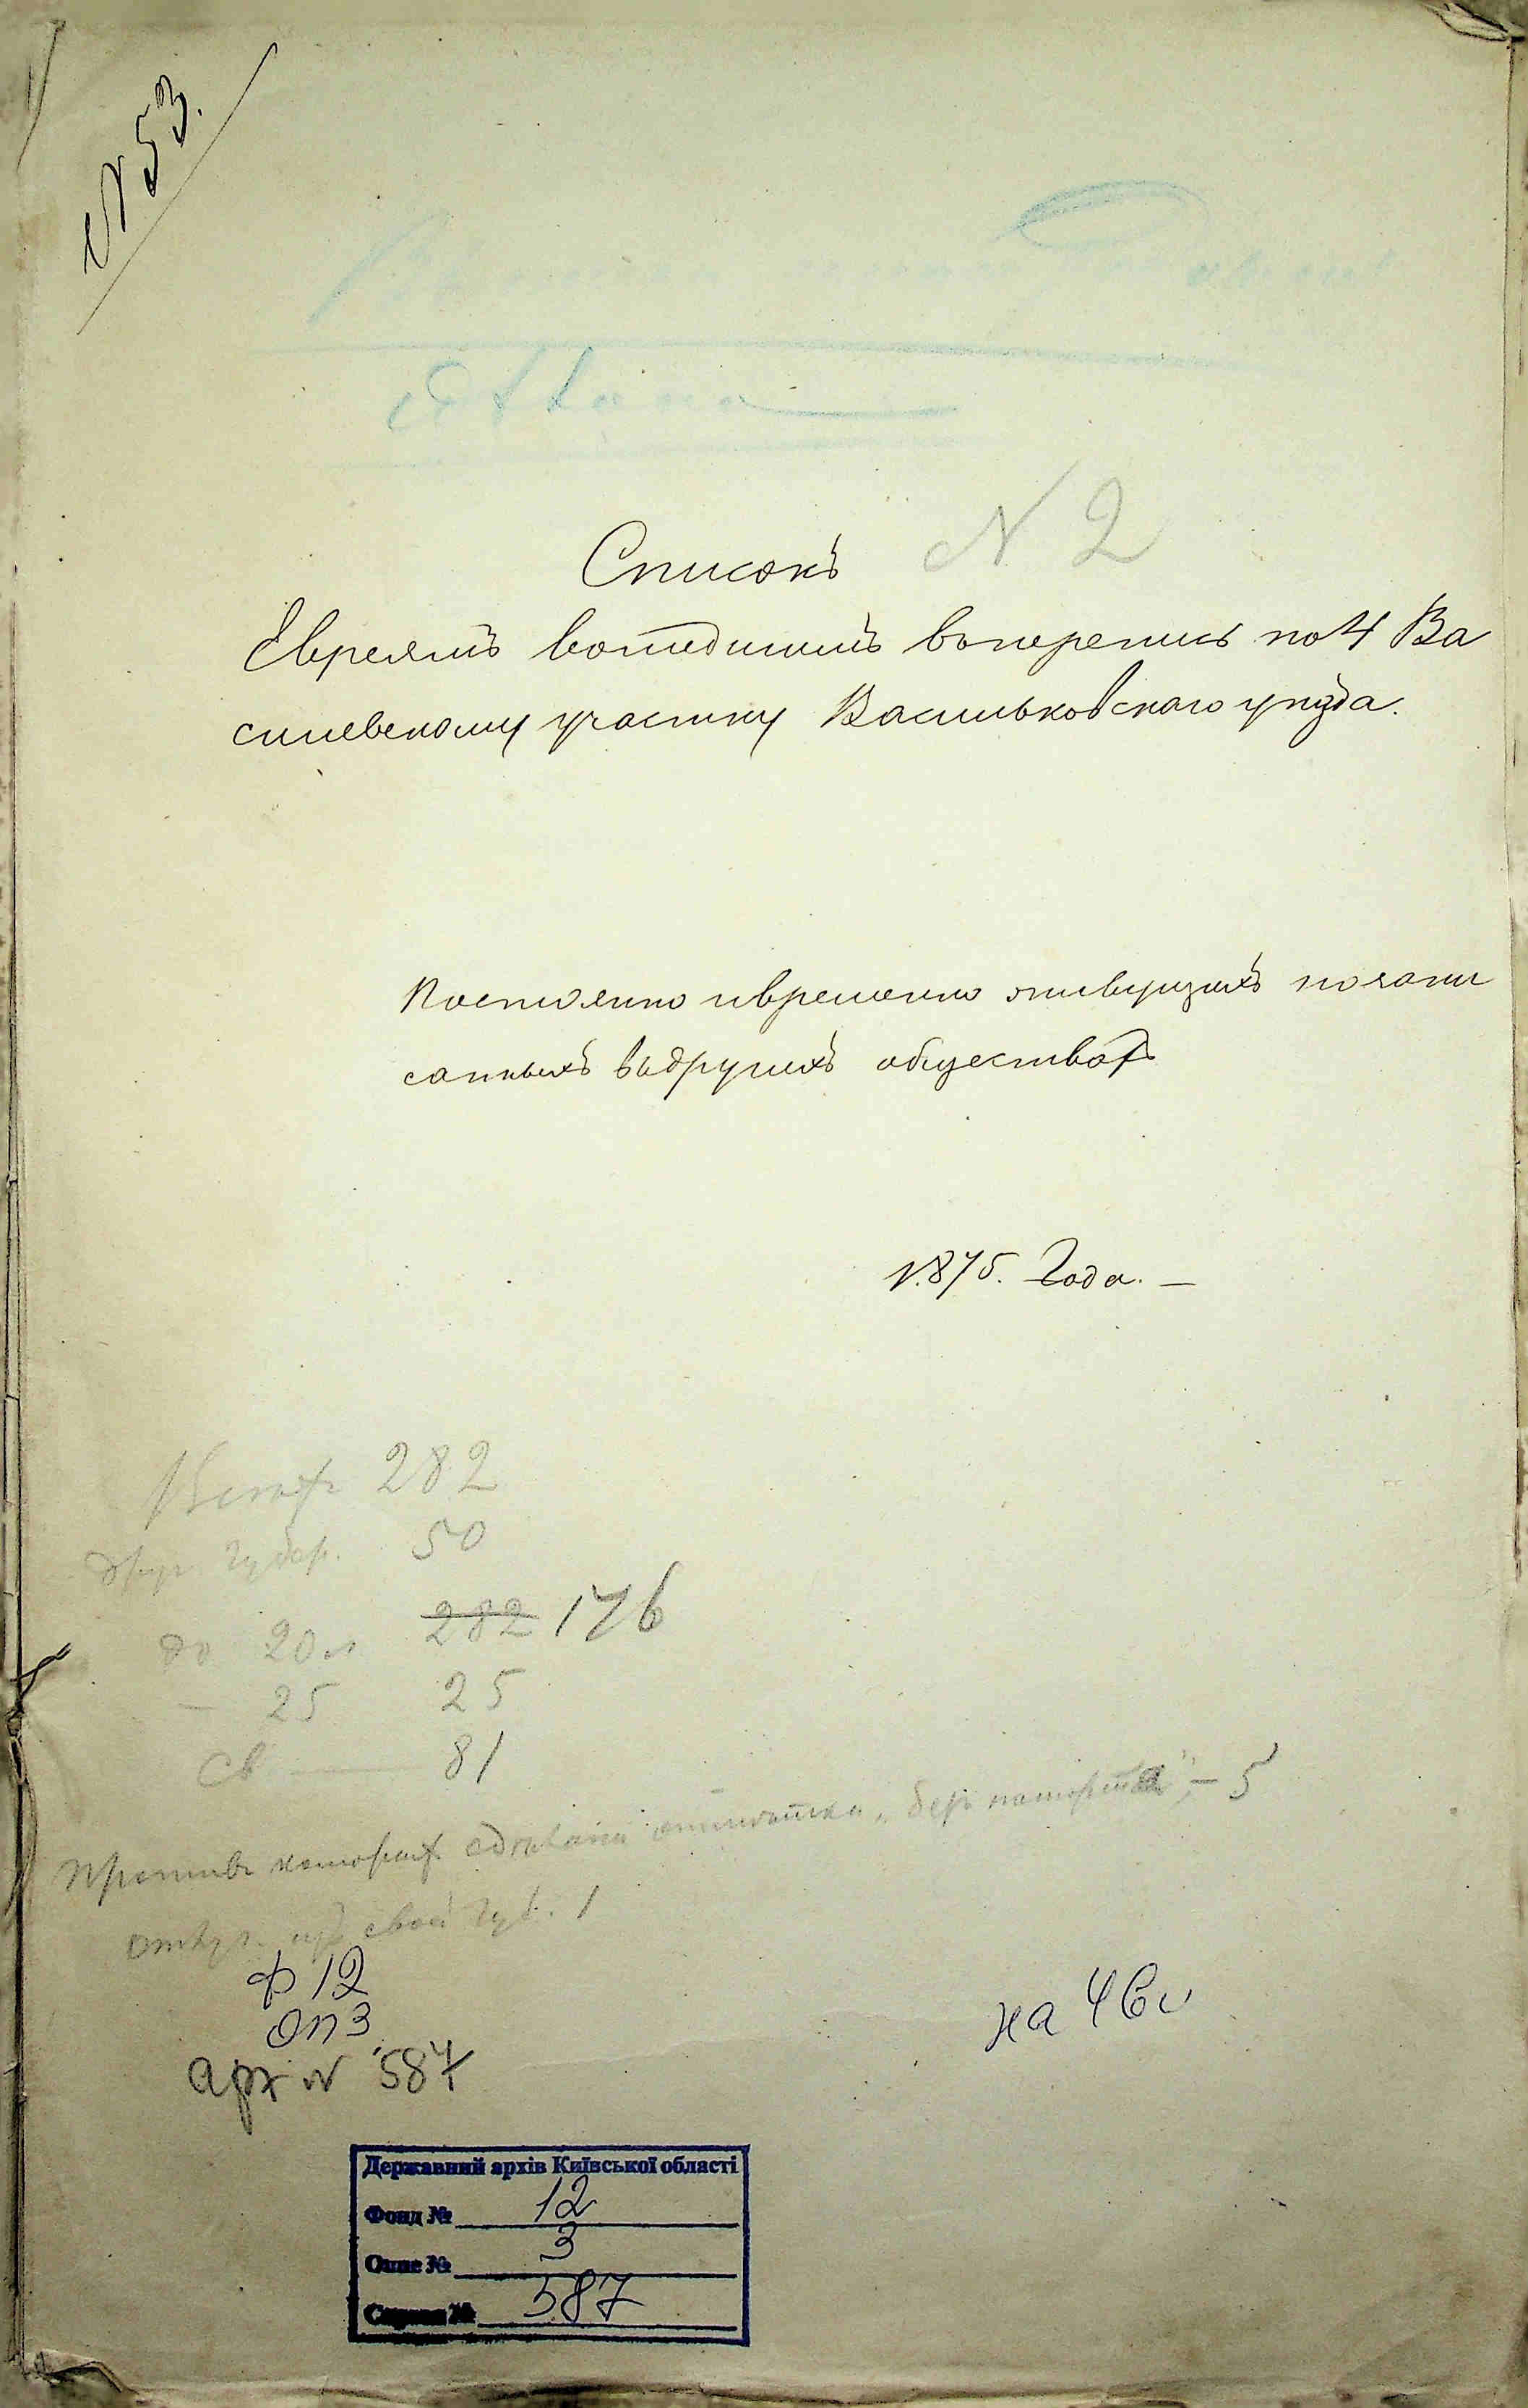 N 53.
Списокъ N 2
Евреямъ вошедшимъ вперепись по 4 Ва
силевскому участку Васильковскаго уѣзда.
Постоянно ивременно живущихъ позапи
саннымъ вдругихъ обществахъ
1875. Года. —
Всѣхъ 282
друг. Губер. 50
до 20 л 282 176
— 25 25
св — 81
Противъ которыхъ сдѣлана отмѣтка „безъ паспорта" — 5
своей Губ. 1
Ф 12
Оп 3
Арх N 587
на 46 л
Державний архів Київської області
Фонд № 12
Опис № 3
Справа № 587